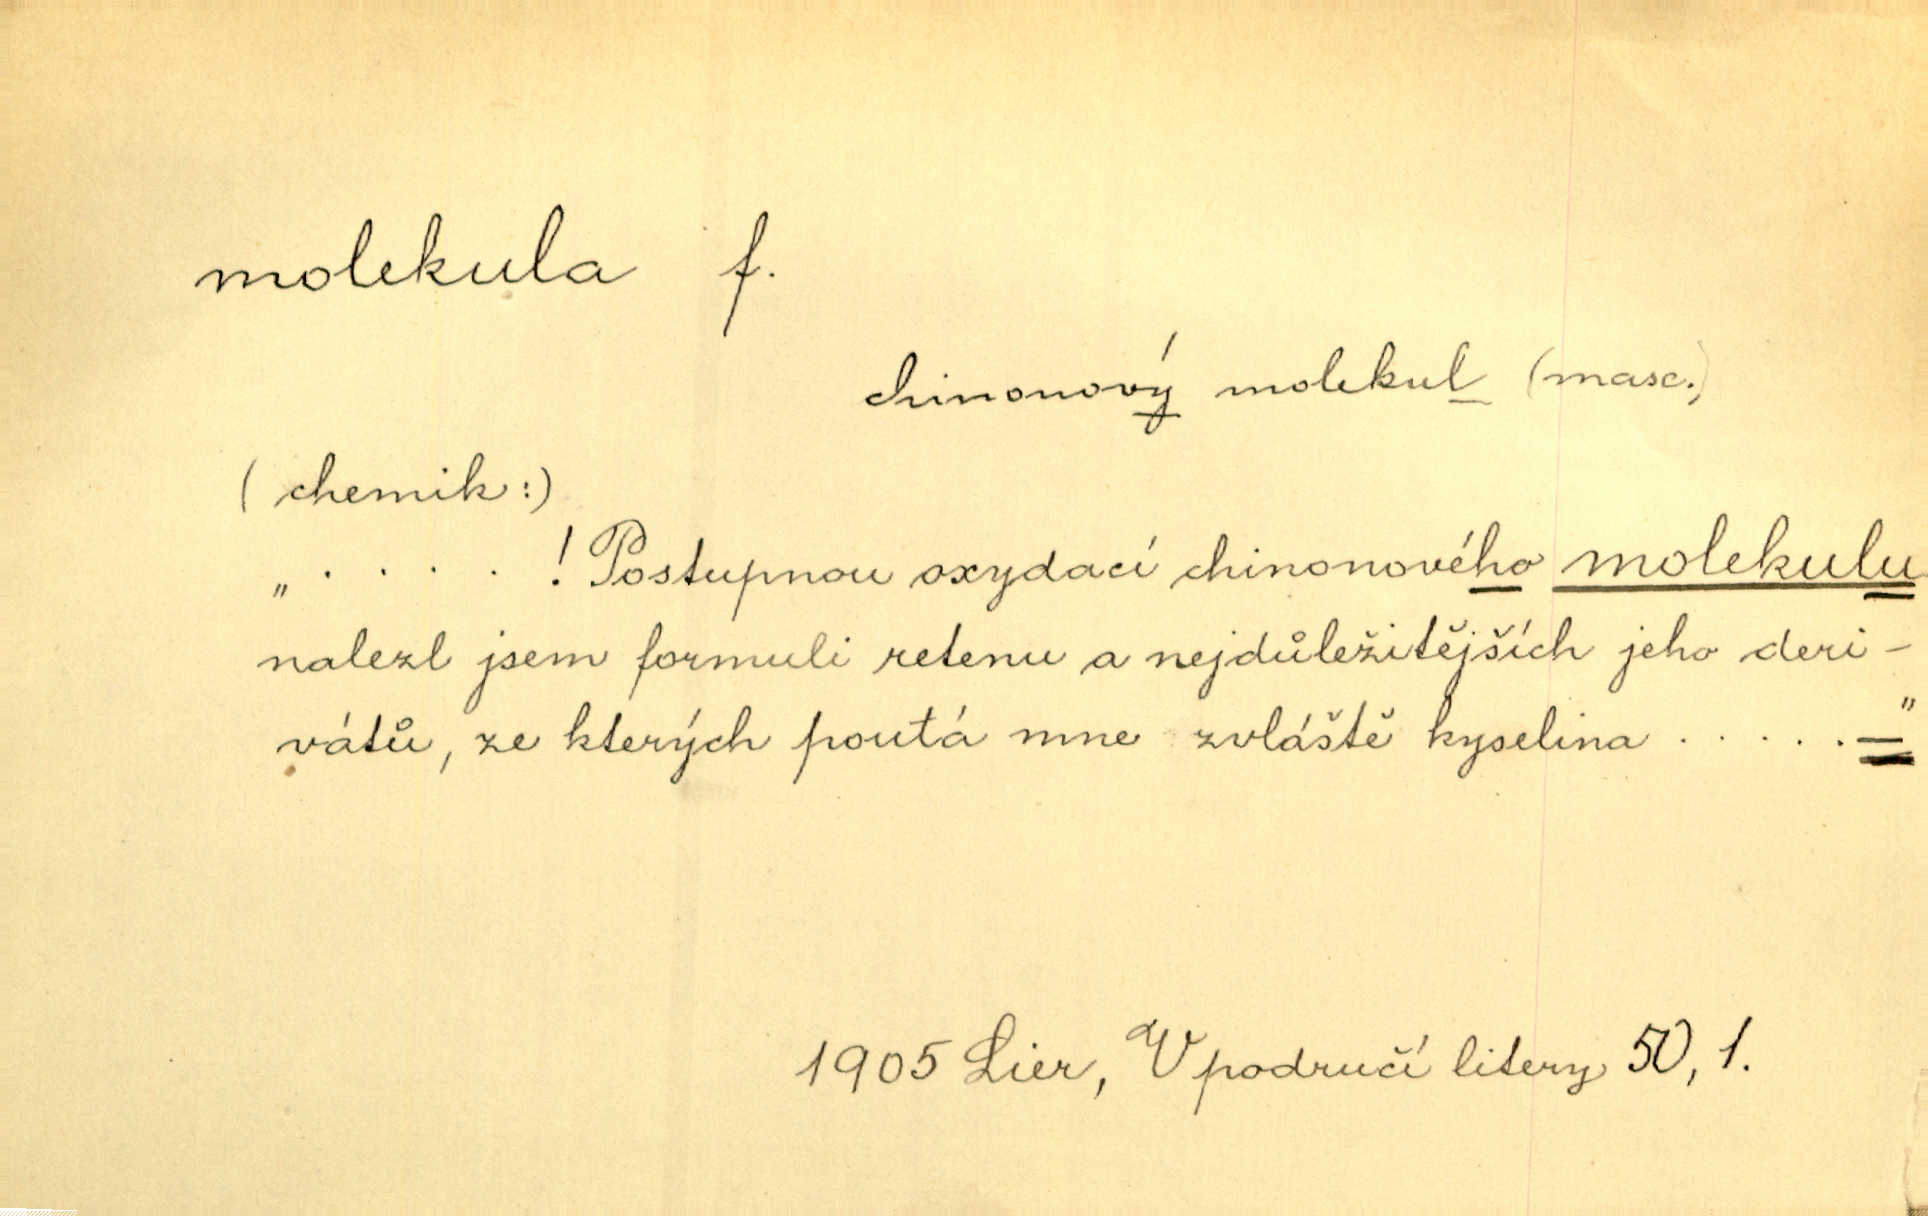 molekula f.
chinonový molekul (masc.)
(chemik:)
„ . . . . ! Postupnou oxydací chinonového molekulu
nalezl jsem formuli retenu a nejdůležitějších jeho deri-
vátů, ze kterých poutá mne zvláště kyselina . . . . . — "
1905 Lier, V područí litery 50, 1.